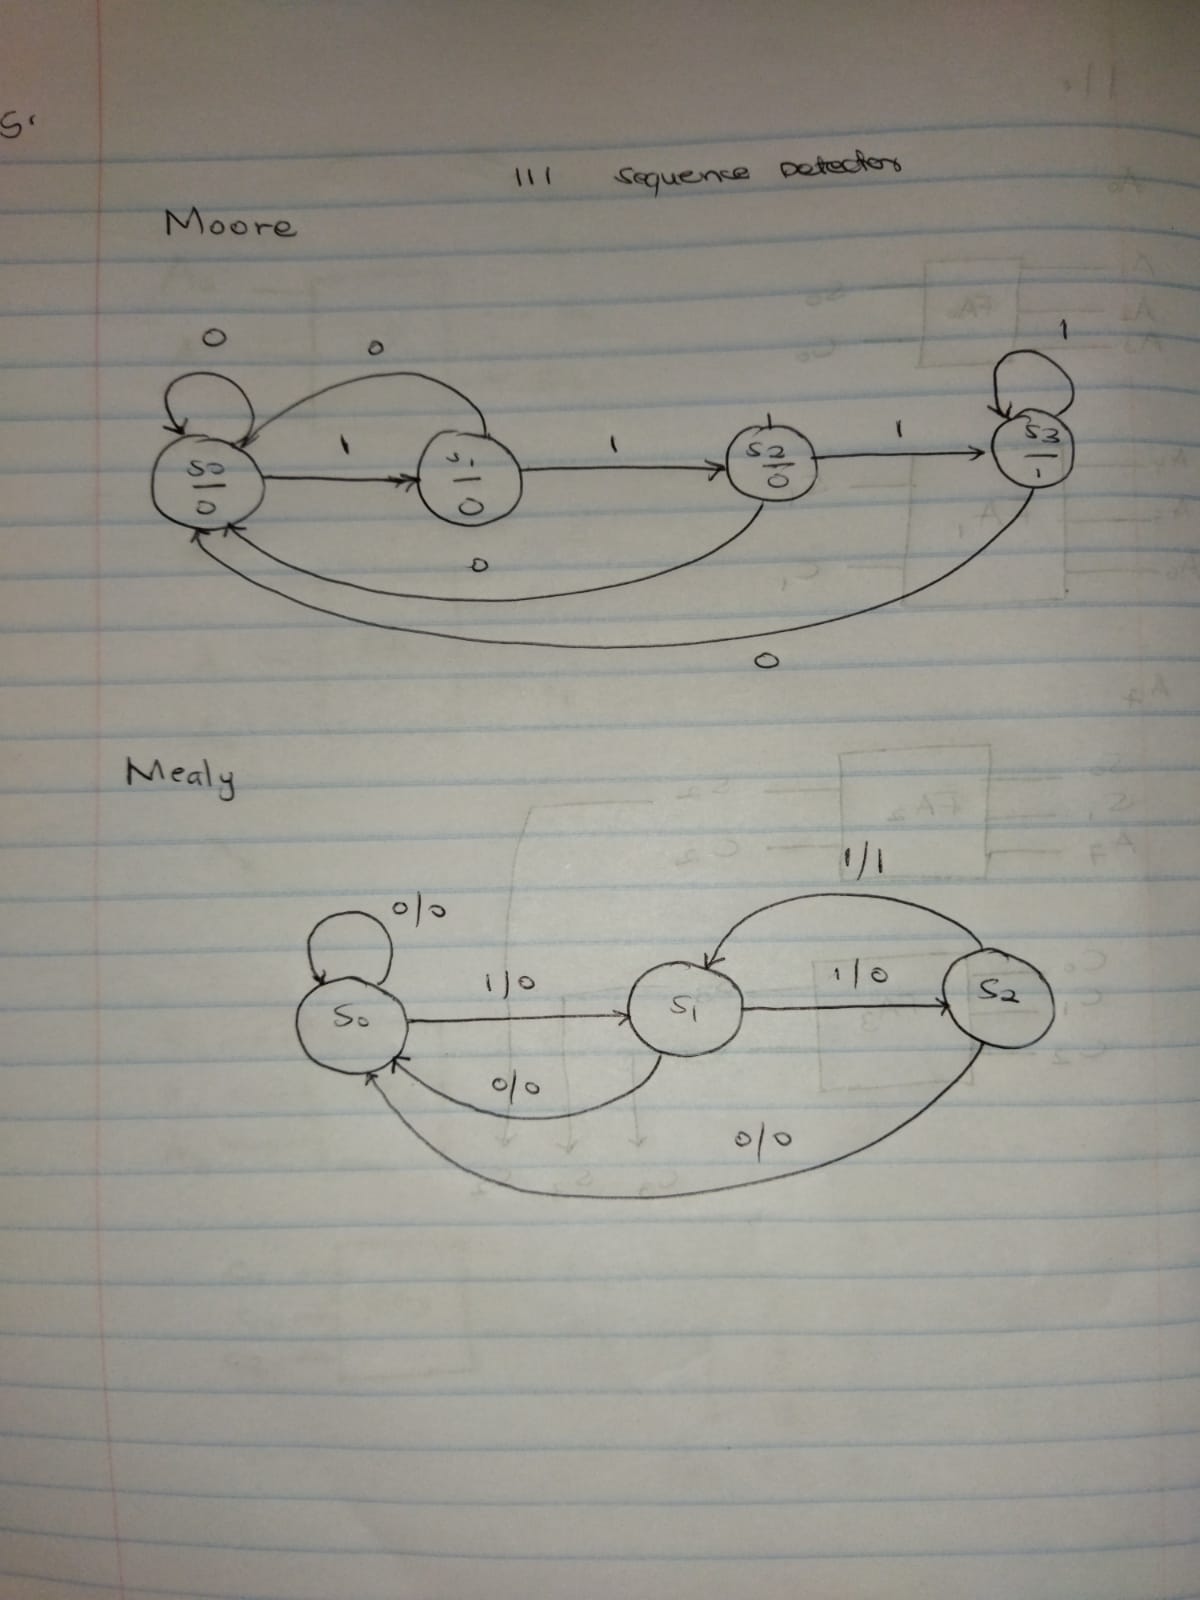 5.
111 Sequence Detector
Moore
0
0
1
1
1
1
S0
0
S1
0
S2
0
S3
1
0
0
Mealy
1/1
0/0
1/0
1/0
S0
S1
S2
0/0
0/0